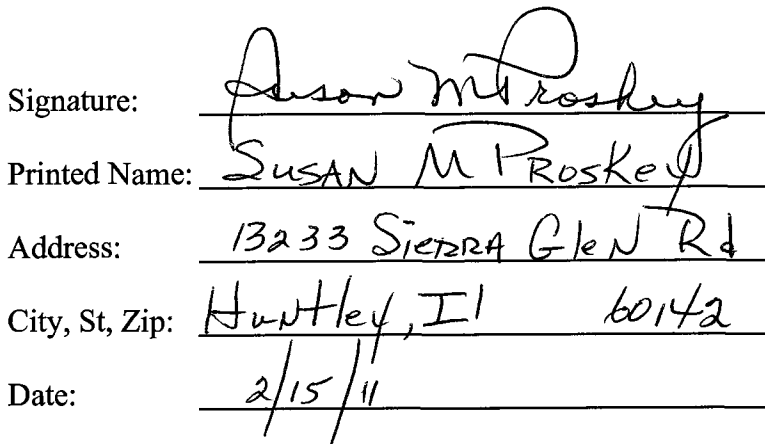 Signature: Susan M Proskey
Printed Name: SUSAN M PROSKEY
Address: 13233 SIERRA GleN Rd
City, St, Zip: HuNtley, Il 60142
Date: 2/15/11